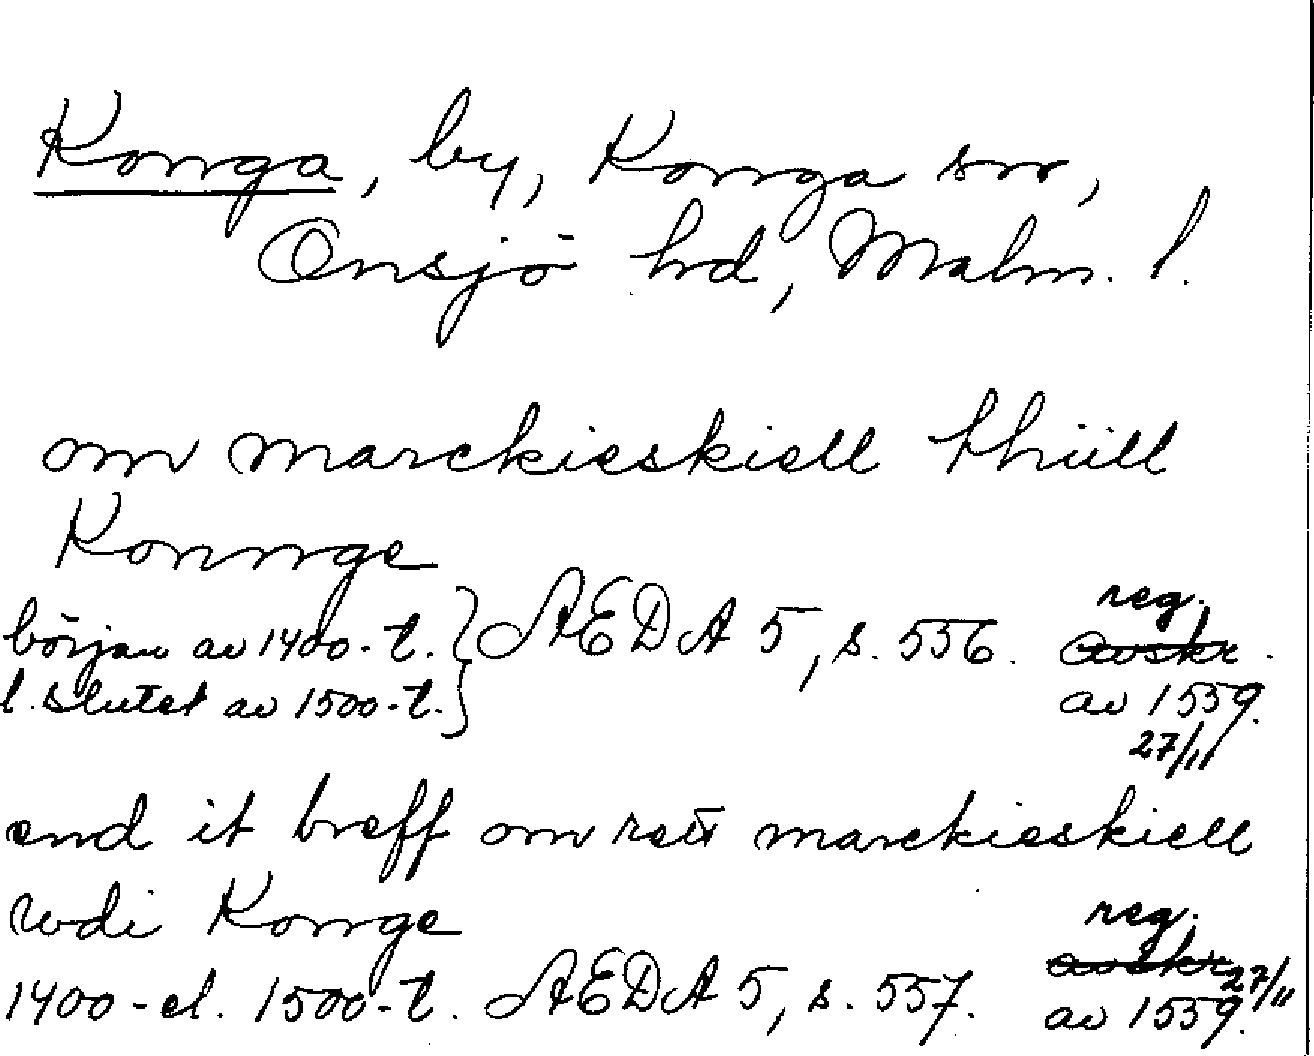 Konga, by, Konga sn,
Onsjö hd, Malm. l.
om marckieskiell thiill
Konnge
reg.
början av 1400-t. } AEDA 5, s. 556. avskr.
l. slutet av 1500-t. } av 1559.
27/11
end it breff om rett marckieskiell
wdi Konge
reg.
avskr 27/11
1400- el. 1500-t. AEDA 5, s. 557. av 1559.